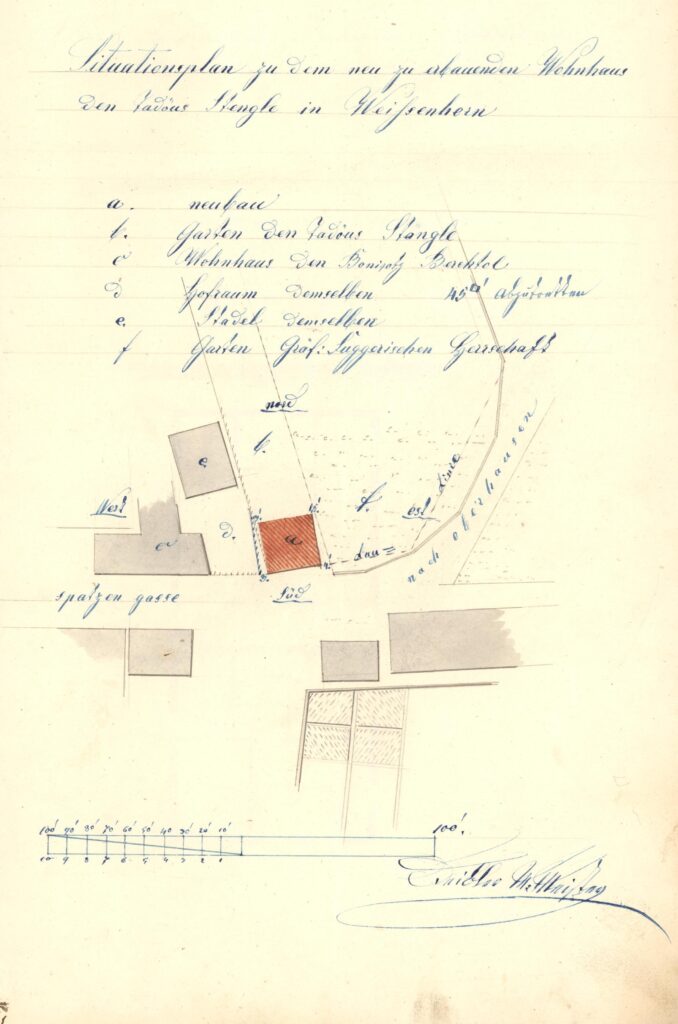 Situationsplan zu dem neu zu erbauenden Wohnhaus
den Tadöus Stengle in Weißenhorn
a. neubau
b. Garten den Tadöus Stangle
c Wohnhaus den Berchtol
d Hofraum demselben 45
e. Stadel demselben
f Garten Gräf: Fuggerischen Herrschaft
nord
b.
e
f.
Linie
nach oberhausen
West
d.
a
est
c
Bau
Süd
spatzen gasse
100' 90' 80' 70' 60' 50' 40' 30' 20' 10' 100'.
10 9 8 7 6 5 4 3 2 1